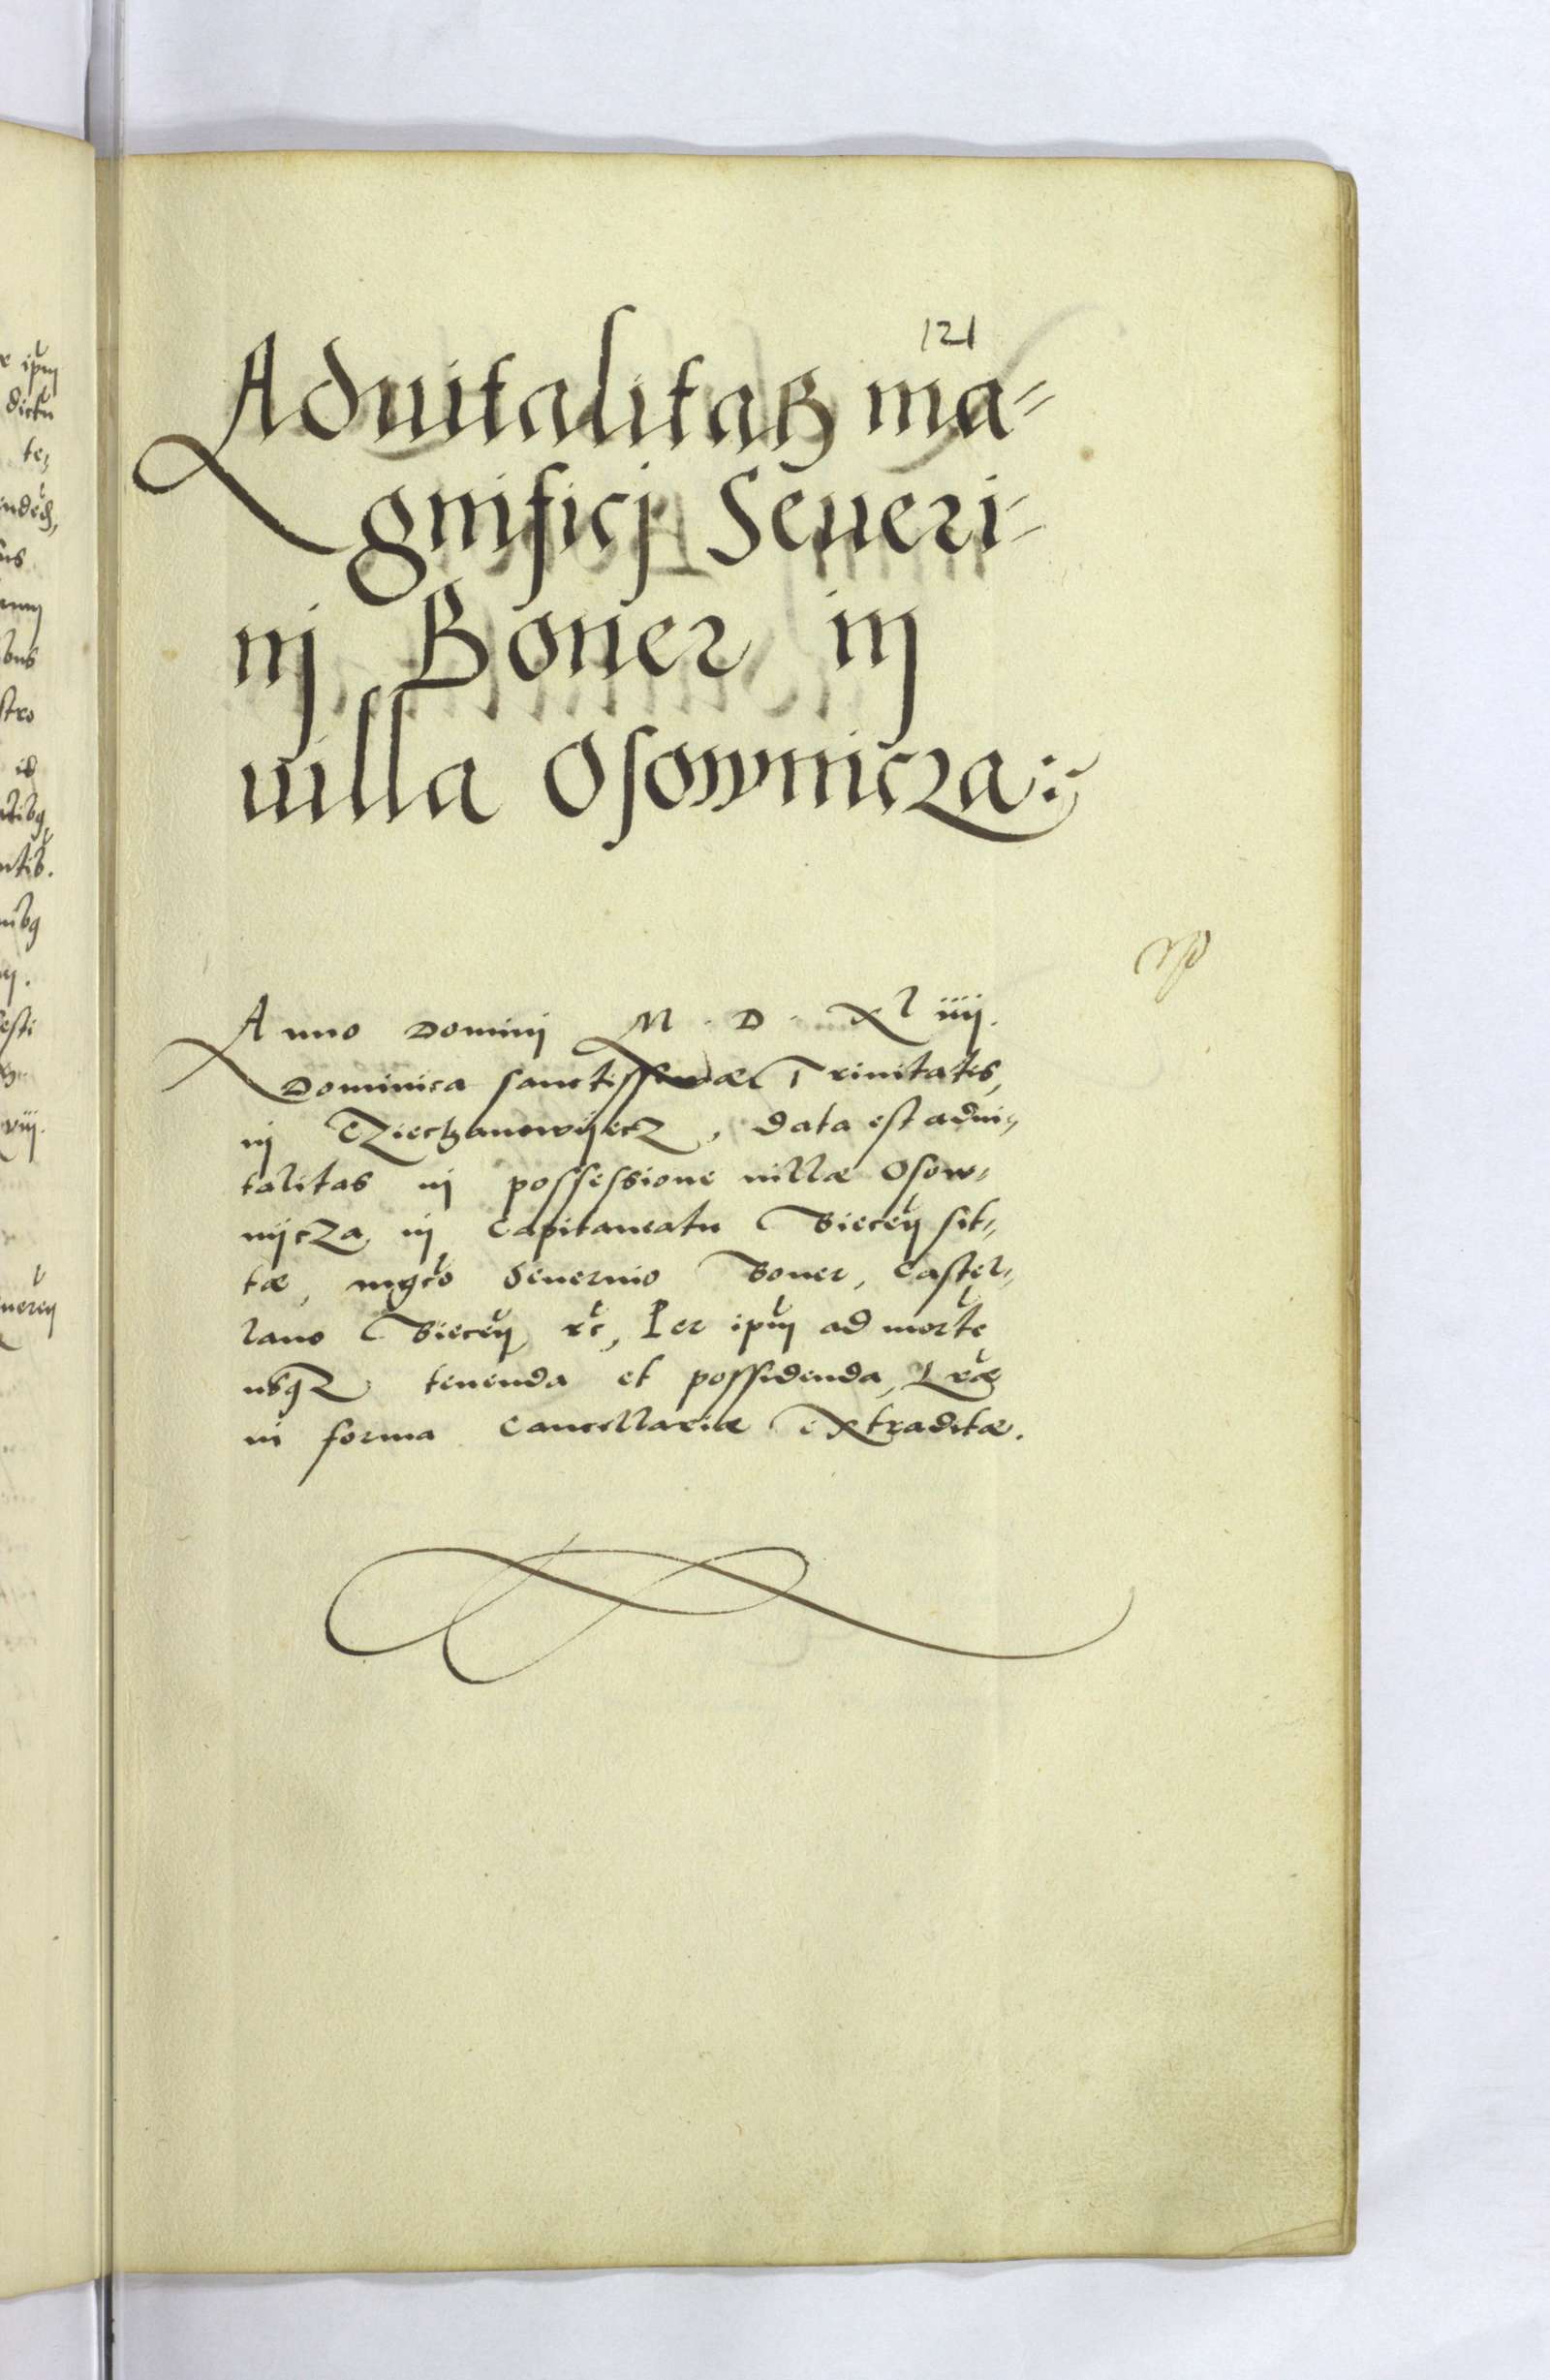 121
Aduitalitas ma=
gnificj Seueri=
nj Boner in
uilla Osownicza:
Anno Domini M. D. Xl iiij.
Dominica sanctissimæ Trinitatis,
in Cziechanowyecz, data est adui=
talitas in possessione uillæ Osow=
nycza, in Capitaneatu Biecen sit=
tæ, mgco Seuerino Boner, Castel=
lano Biecen etc, Per ipm ad morte
usqz tenenda et possidenda, Lræ
in forma Cancellariæ Extraditæ.